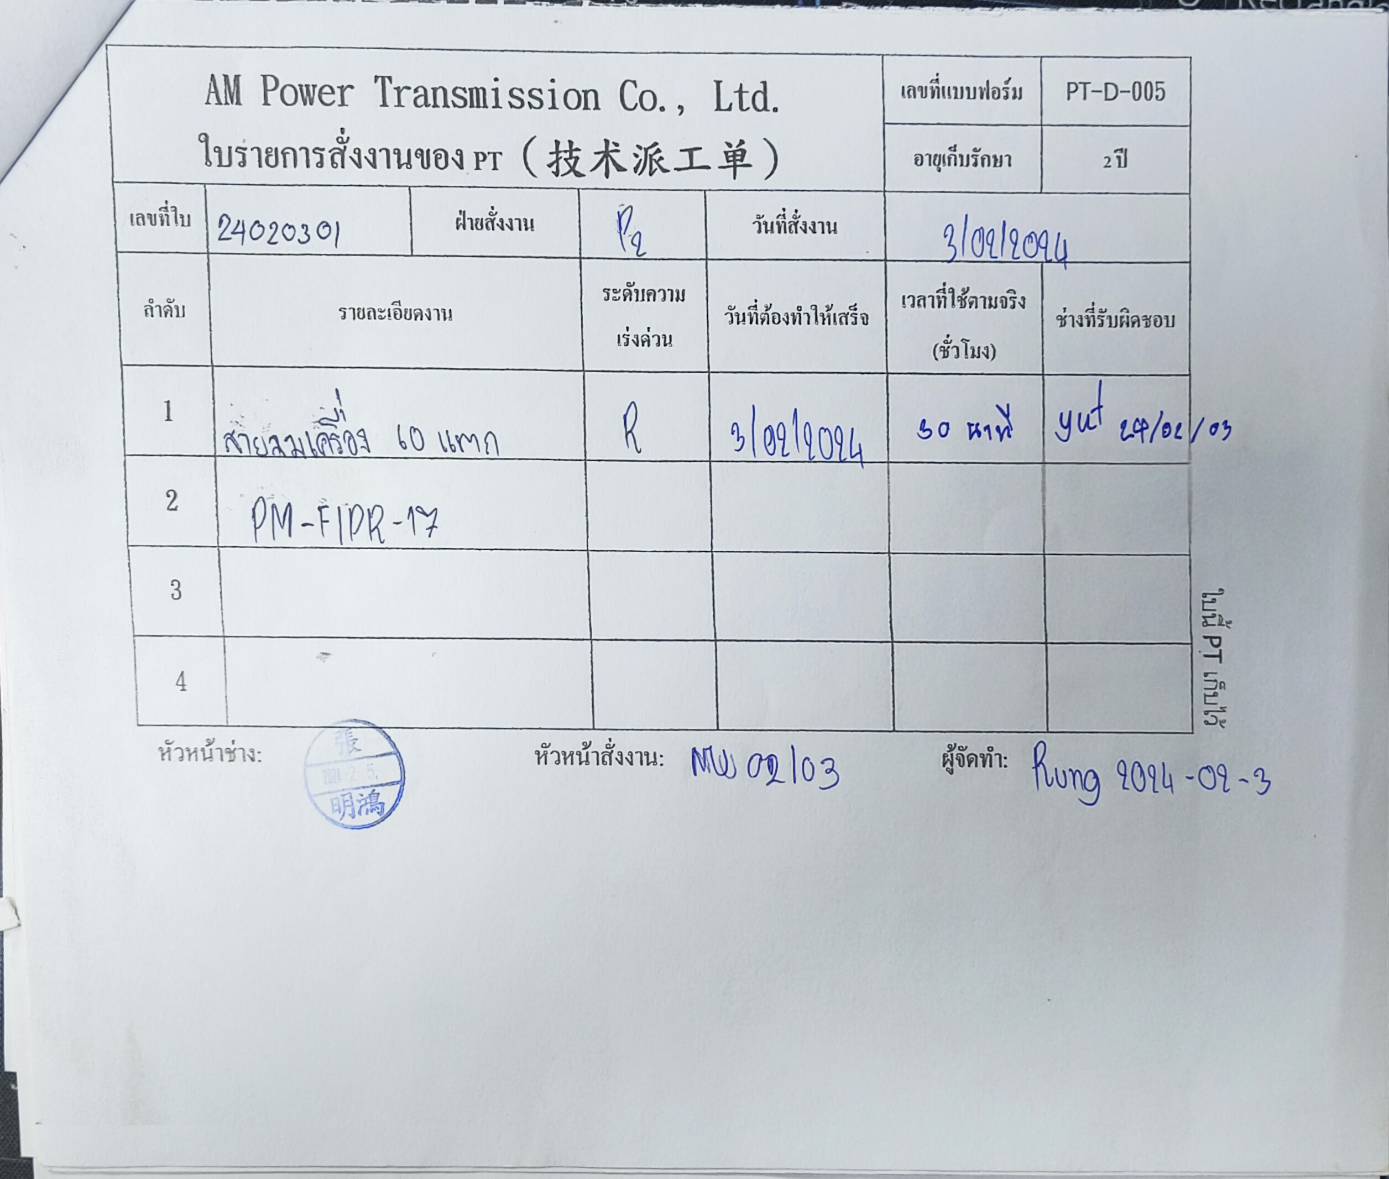 AM Power Transmission Co., Ltd.
ใบรายการสั่งงานของ PT (技术派工单)
เลขที่แบบฟอร์ม PT-D-005
อายุเก็บรักษา 2 ปี
เลขที่ใบ 24020301 ฝ่ายสั่งงาน P2 วันที่สั่งงาน 3/02/2024
ลำดับ รายละเอียดงาน ระดับความเร่งด่วน วันที่ต้องทำให้เสร็จ เวลาที่ใช้ตามจริง (ชั่วโมง) ช่างที่รับผิดชอบ
1 สายลมเครื่อง 60 แตก R 3/02/2024 30 นาที yut 24/02/03
2 PM-FIPR-17
3
4
ใบนี้ PT เก็บไว้
หัวหน้าช่าง: 張 明鴻 หัวหน้าสั่งงาน: MW 02/03 ผู้จัดทำ: Rung 2024-02-3